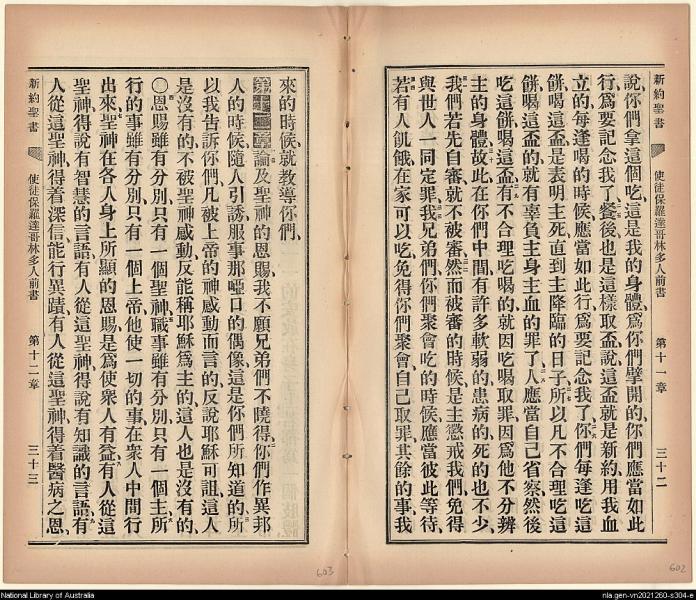 新約聖書 使徒保羅達哥林多人前書 第十一章 三十二
說、你們拿這個吃、這是我的身體、爲你們擘開的、你們應當如此
行、爲要記念我了、餐後也是這樣取盃說、這盃就是新約、用我血
立的、每逢喝的時候、應當如此行、爲要記念我了、你們每逢吃這
餅、喝這盃、是表明主死、直到主降臨的日子、所以凡不合理吃這
餅、喝這盃的、就有辜負主身主血的罪了、人應當自己省察、然後
吃這餅喝這盃、有不合理吃喝的、就因吃喝取罪、因爲他不分辨
主的身體、故此在你們中間有許多軟弱的、患病的、死的也不少、
我們若先自審、就不被審、然而被審的時候、是主懲戒我們、免得
與世人一同定罪、我兄弟們、你們聚會吃的時候、應當彼此等待、
若有人飢餓、在家可以吃、免得你們聚會、自己取罪、其餘的事、我
來的時候、就教導你們、
第十二章 論及聖神的恩賜、我不願兄弟們不曉得、你們作異邦
人的時候、隨人引誘、服事那啞口的偶像、這是你們所知道的、所
以我告訴你們、凡被上帝的神感動而言的、反說耶穌可詛、這人
是沒有的、不被聖神感動、反能稱耶穌爲主的、這人也是沒有的、
〇恩賜雖有分別、只有一個聖神、職事雖有分別、只有一個主、所
行的事雖有分別、只有一個上帝、他使一切的事、在衆人中間行
出來、聖神在各人身上所顯的恩賜、是爲使衆人有益、有人從這
聖神得說有智慧的言語、有人從這聖神得說有知識的言語、有
人從這聖神得着深信、能行異蹟、有人從這聖神得着醫病之恩、
新約聖書 使徒保羅達哥林多人前書 第十二章 三十三
603
602
National Library of Australia
nla.gen-vn2021260-s304-e